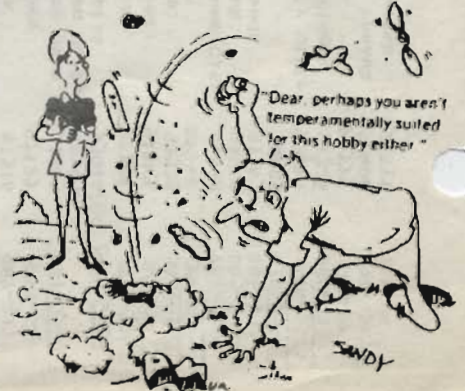 "Dear, perhaps you aren't
temperamentally suited
for this hobby either."
SANDY